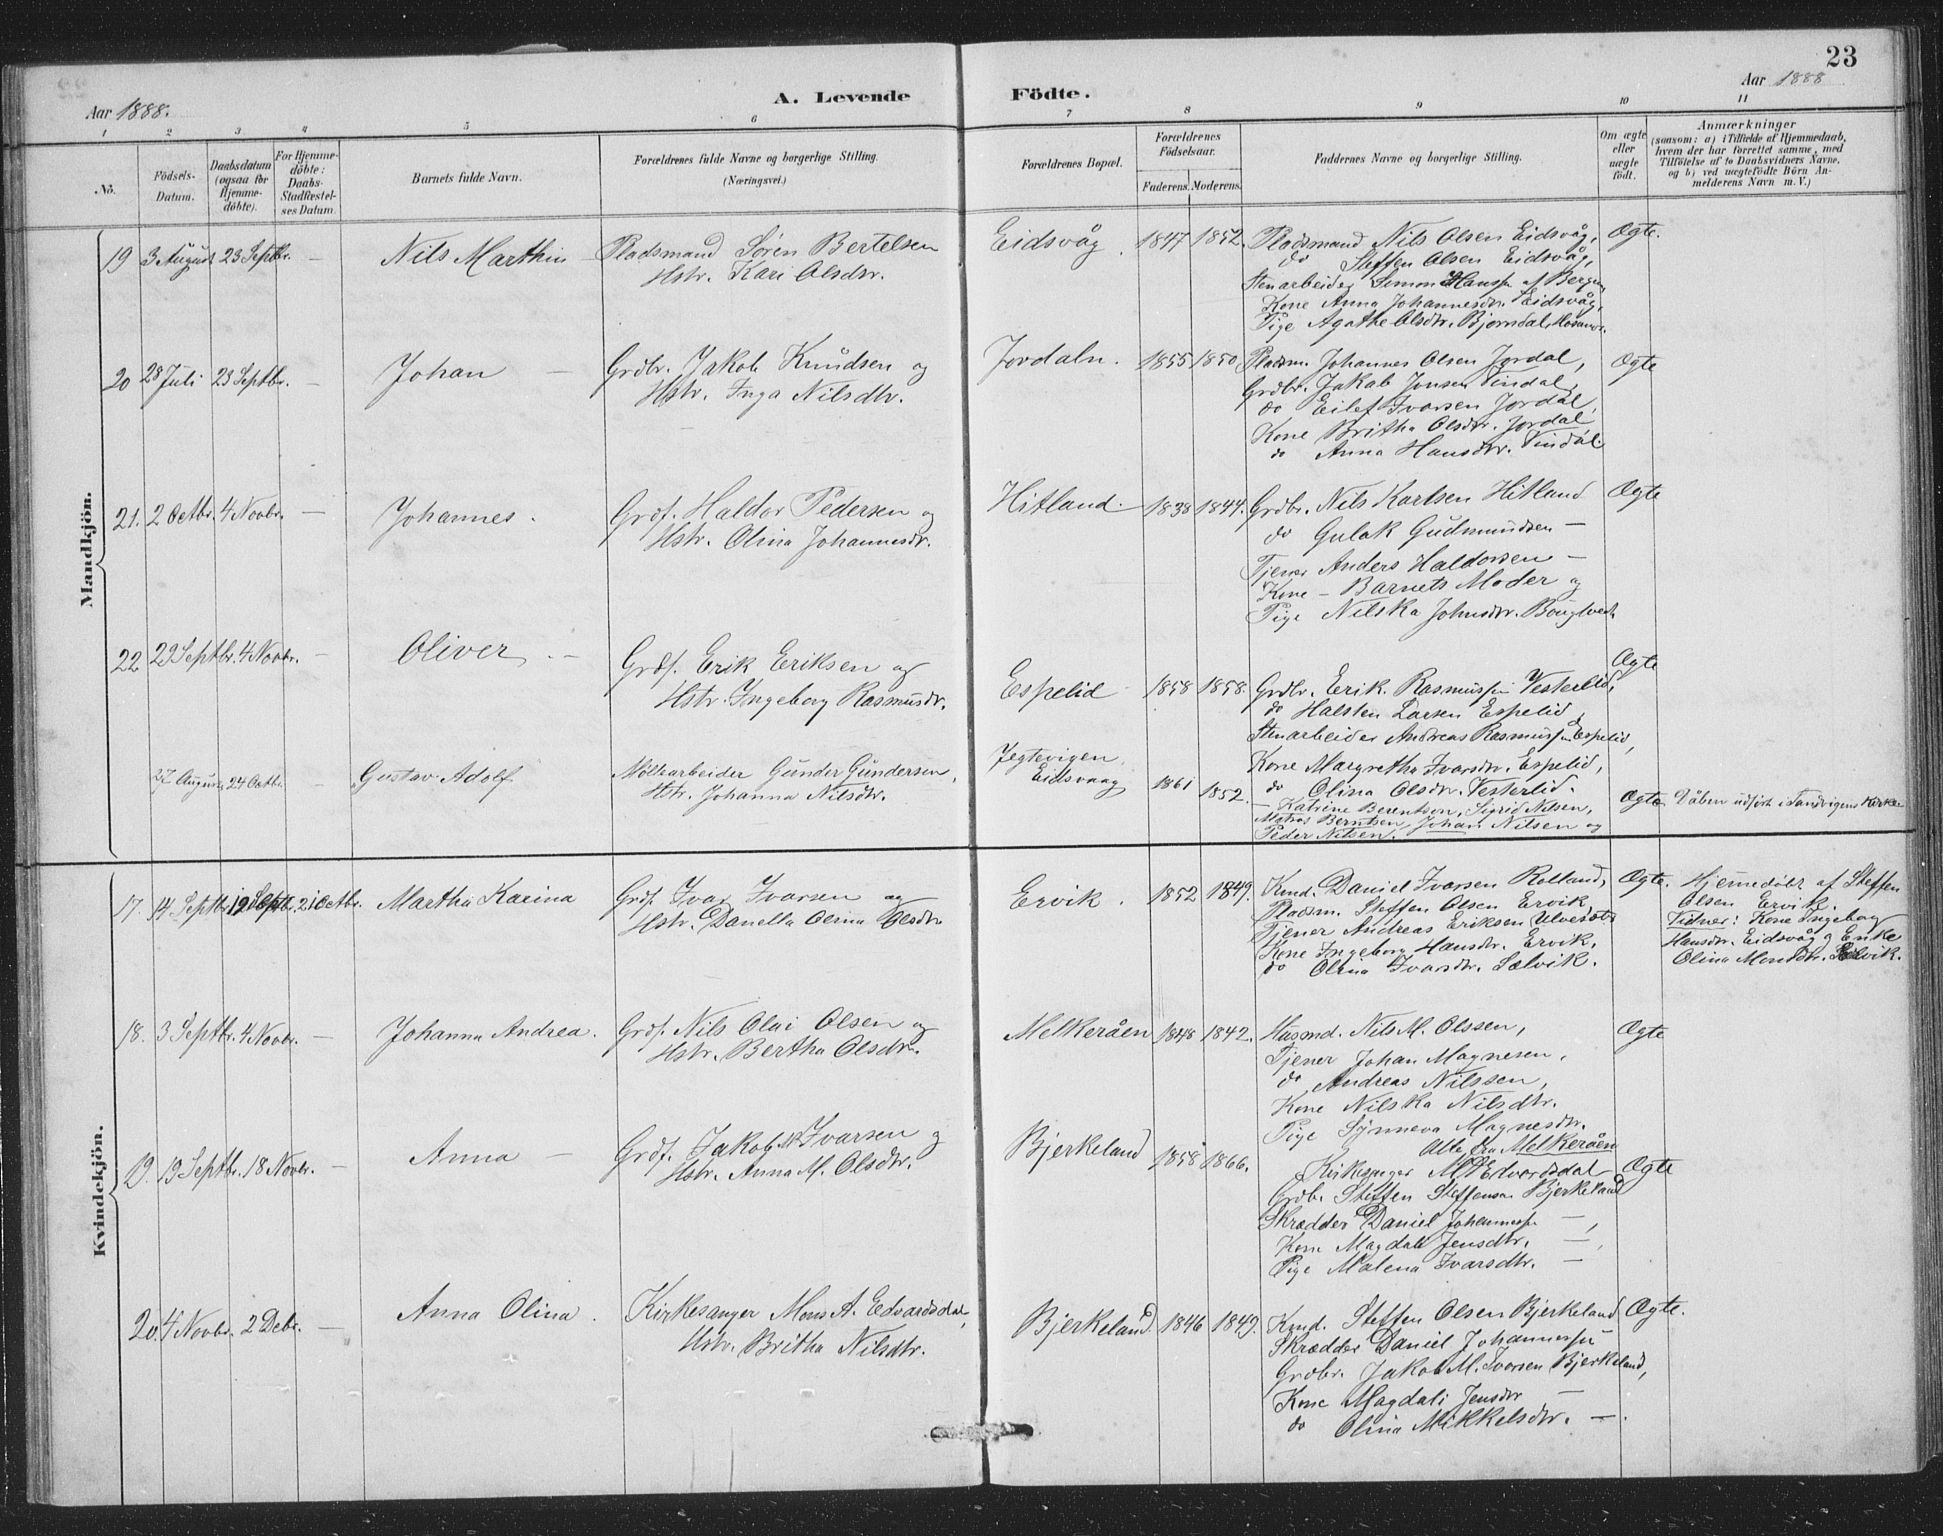 23
Aar 1888.
A. Levende Födte.
Aar 1888
1 2 3 4 5 6 7 8 9 10 11
No.
Födsels-Datum.
Daabsdatum (ogsaa for Hjemme-döbte).
For Hjemme-döbte: Daabs-Stadfæstel-ses Datum.
Barnets fulde Navn.
Forældrenes fulde Navne og borgerlige Stilling.
(Næringsvei.)
Forældrenes Bopæl.
Forældrenes Födselsaar.
Faderens. Moderens.
Faddernes Navne og borgerlige Stilling.
Om ægte eller uægte födt.
Anmærkninger
(saasom: a) i Tilfælde af Hjemmedaab,
hvem der har forrettet samme, med
Tilföielse af to Daabsvidners Navne,
og b) ved uægtefödte Börn An-
melderens Navn m. V.)
Mandkjön.
19 3 August 23 Septbr. — Nils Marthin Pladsmand Søren Bertelsen
Hstr. Kari Olsdtr.
Eidsvåg. 1847 1852.
Pladsmand Nils Olsen Eidsvåg,
do Steffen Olsen Eidsvåg,
Stenarbeider Simon Hanssen af Bergen
Kone Anna Johannesdtr. Eidsvåg,
Pige Agathe Olsdtr. Bjørndal,
Ægte.
20 28 Juli 23 Septbr. — Johan — Grdbr. Jakob Knudsen og
Hstr. Inga Nilsdtr.
Jordaln. 1855 1850.
Pladsm. Johannes Olsen Jordal,
Grdbr. Jakob Jonsen Tindal,
do Eilef Ivarsen Jordal,
Kone Britha Olsdtr. Jordal
do Anna Hansdtr. Tindal.
Ægte
21. 2 Octbr. 4 Novbr. — Johannes. Grdf. Haldor Pedersen og
Hstr. Olina Johannesdr.
Hitland. 1838 1844.
Grdbr. Nils Karlsen Hitland
do Gulak Gudmundsen —
Tjener Anders Haldorsen —
Kone — Barnets Moder og
Pige Nilska Johnsdtr.
Ægte
22 29 Septbr. 4 Novbr. — Oliver — Grdf. Erik Eriksen og
Hstr. Ingeborg Rasmusdr.
Espelid 1858 1858.
Grdbr. Erik Rasmussen Vesterlid,
do Halsten Larsen Espelid,
Stenarbeider Andreas Rasmussen Espelid,
Kone Margretha Ivarsdtr. Espelid,
do Olina Olsdtr. Vesterlid.
Ægte
27 August 24 Octbr. — Gustav Adolf Mölearbeider Gunder Gundersen,
Hstr. Johanna Nilsdtr.
Jegtevigen,
Eidsvaag 1861 1852.
— Katrine Berentsen, Sigrid Nilsen,
Mathias Berntsen, Johan Nilsen og
Peder Nilsen.
Ægte. Dåben udført i Sandvigens Kirke
Kvindekjön.
17. 14 Septbr. 19 Septbr. 21 Octbr. Martha Karina Grdf. Ivar Ivarsen og
Hstr. Danella Oline Olsdtr
Ervik. 1852 1849.
Kmd. Daniel Ivarsen Rolland,
Pladsm. Steffen Olsen Ervik,
Tjener Andreas Eriksen
Kone Ingeborg Hansdtr. Ervik,
do Olina Ivarsdtr. Sælvik.
Ægte. Hjemmedøbt af Steffen
Olsen Ervik.
Vidner: Kone Ingeborg
Hansdtr. Eidsvåg og Enke
Olina Monsdtr. Sælvik.
18. 3 Septbr. 4 Novbr. — Johanna Andrea. Grdf. Nils Olai Olsen og
Hstr. Bertha Olsdr.
Melkeråen 1848 1842.
Husmd. Nils M. Olssen,
Tjener Johan Magnesen,
do Andreas Nilssen,
Kone Nilska Nilsdtr.
Pige Synneva Magnesdtr.
Alle fra Melkeråen
Ægte
19. 19 Septbr. 18 Novbr. — Anna — Grdf. Jakob M Ivarsen og
Hstr. Anna M. Olsdtr.
Bjerkeland 1858 1866.
Kirkesanger M Edvardsdal
Grdb. Steffen Steffensen Bjerkeland
Skrædder Daniel Johannessen —,
Kone Magdali Jensdtr. —,
Pige Malena Ivarsdtr. —
Ægte
20 4 Novbr. 2 Debr. — Anna Olina. Kirkesanger Mons A. Edvardsdal,
Hstr. Britha Nilsdtr.
Bjerkeland. 1846 1849.
Kmd. Steffen Olsen Bjerkeland
Skrædder Daniel Johannessen
Grdbr. Jakob M. Ivarsen Bjerkeland,
Kone Magdali Jensdtr —
do Olina Mikkelsdtr. —.
Ægte.